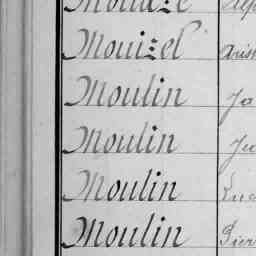 Mouizel Aris
Moulin Jo
Moulin Ju
Moulin
Moulin Pier